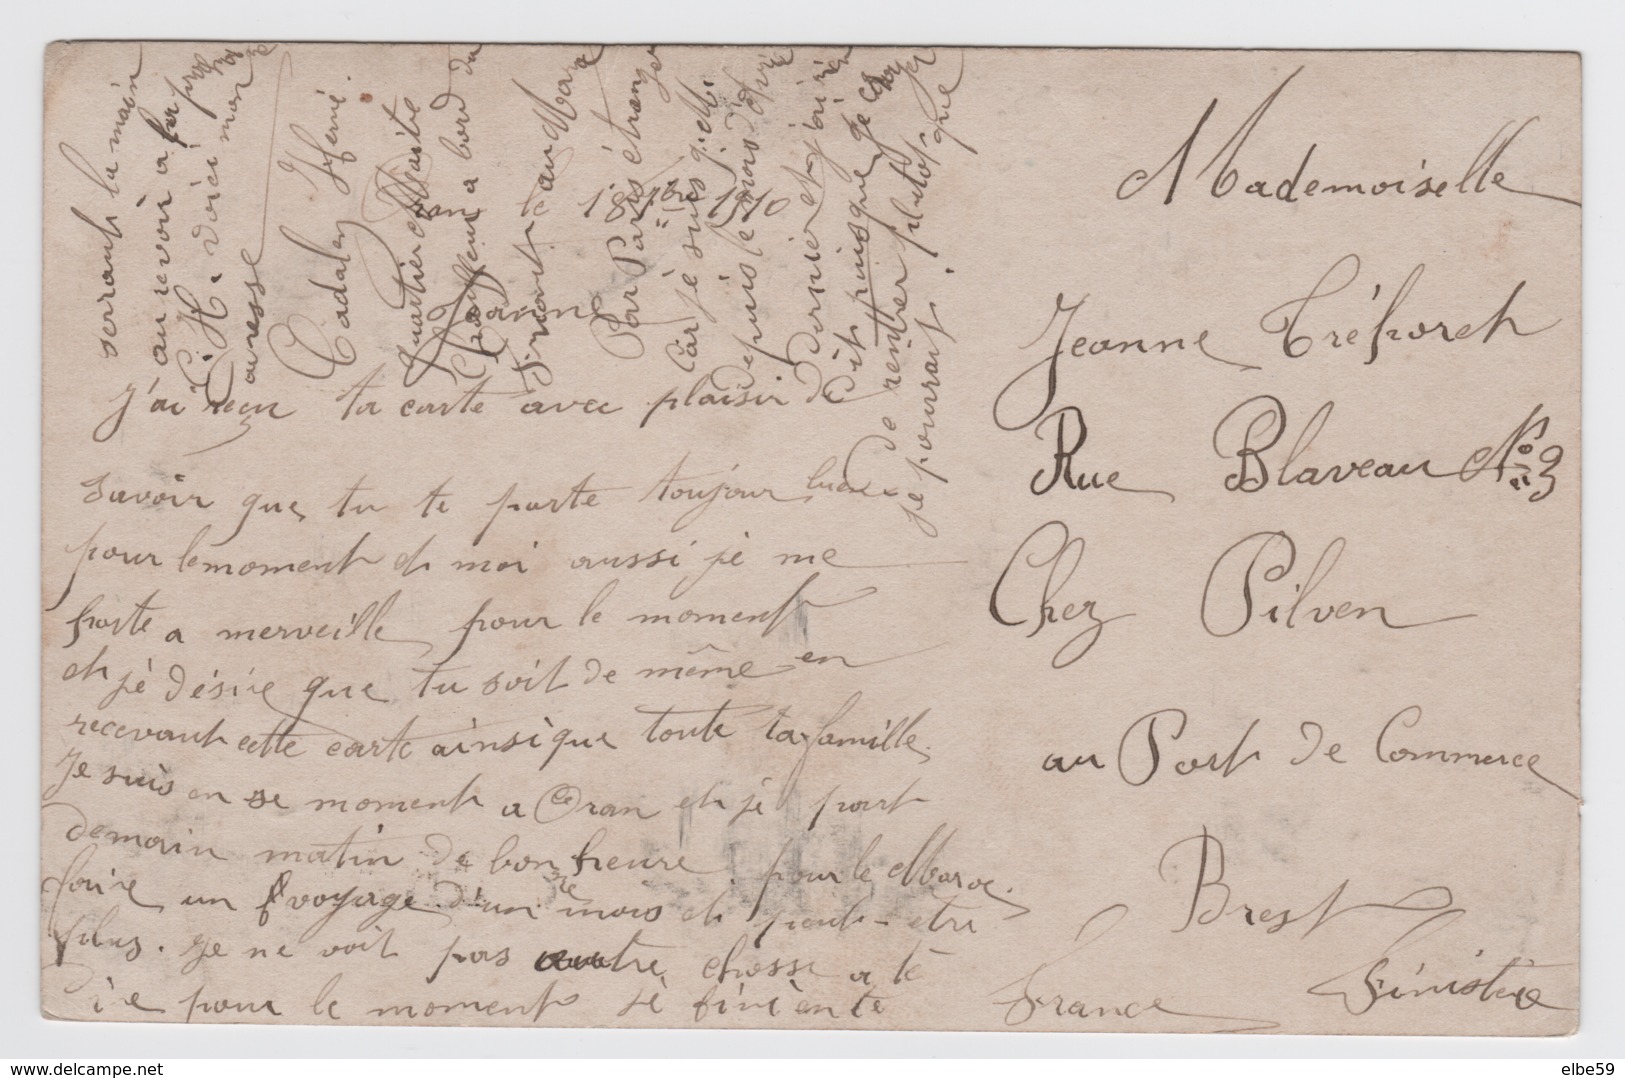 Oran le 18 9bre 1910
Jeanne
j'ai recu ta carte avec plaisir de
savoir que tu te porte toujour bien
pour le moment et moi aussi je me
porte a merveille pour le moment
et jè désire que tu soit de même en
recevant cette carte ainsi que toute ta famille.
Je suis en se moment a Oran et jè part
demain matin de bonheure pour le Maroc.
faire un voyage d'un mois et peut-etre
plus. Je ne voit pas autre chosse a te
die pour le moment jè fini en te
serrant la main
au revoir a
C. H. voici mon
adresse
Cadalen Hervé
Quartier Maitre
Chauffeur a bord du
Friant au Maroc
Par Paris étranger
car je suis q. M.
depuis le mois d'avril
dernier et j'ai rien
dit puisque jè
de rentrer plutot que
je pourrait.
Mademoiselle
Jeanne Tréhorch
Rue Blaveau No 3
Chez Pilven
au Port de Commerce
Brest
Finistère
France
elbe59